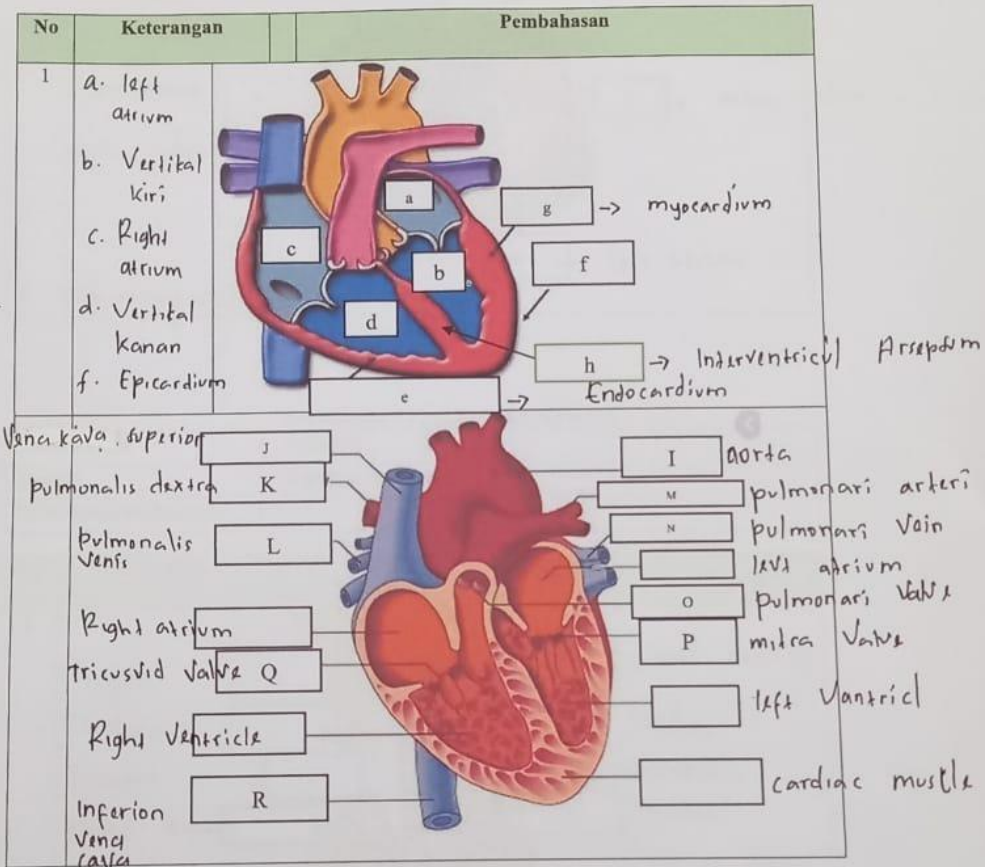 No Keterangan Pembahasan
1
a. left
atrium
b. Vertikal
kiri
c. Right
atrium
d. Vertikal
kanan
f. Epicardium
a
b
c
d
g → myocardium
f
h → Interventricul Arseptum
e → Endocardium
Vena kava superior J
pulmonalis dextra K
pulmonalis
venis
L
Right atrium
Tricusvid valve Q
Right Ventricle
Inferion
vena
cava
R
I aorta
M pulmonari arteri
N pulmonari Vain
levt atrium
O pulmonari Valve
P mitra Valve
left Vantricl
cardiac mustle